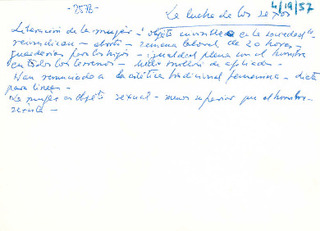 - 2578 -
4/19/57
La lucha de los sexos
Liberación de la mujer - objeto en la sociedad -
reivindican - aborto - semana laboral de 20 horas -
guarderías para los hijos - igualdad plena con el hombre
en todos los terrenos -
Han renunciado a la estética tradicional femenina - dieta
para línea -
La mujer es objeto sexual - menos superior que el hombre -